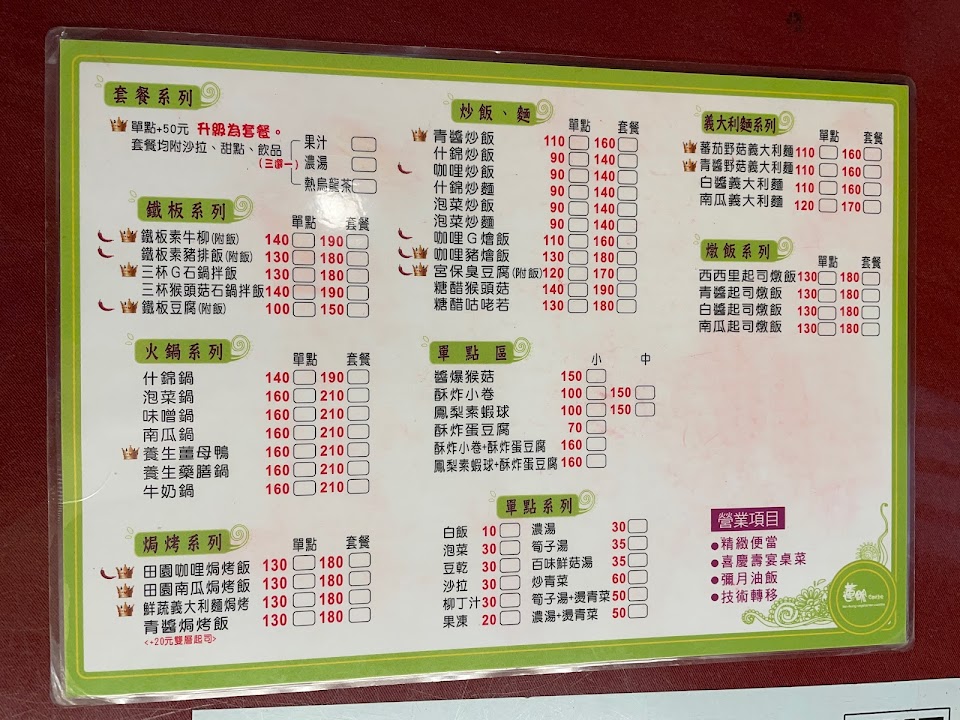 套餐系列
單點+50元 升級為套餐。
套餐均附沙拉、甜點、飲品
(三選一)
果汁
濃湯
熱烏龍茶
鐵板系列
單點 套餐
鐵板素牛柳(附飯) 140 190
鐵板素豬排飯(附飯) 130 180
三杯G石鍋拌飯 130 180
三杯猴頭菇石鍋拌飯 140 190
鐵板豆腐(附飯) 100 150
火鍋系列
單點 套餐
什錦鍋 140 190
泡菜鍋 160 210
味噌鍋 160 210
南瓜鍋 160 210
養生薑母鴨 160 210
養生藥膳鍋 160 210
牛奶鍋 160 210
焗烤系列
單點 套餐
田園咖哩焗烤飯 130 180
田園南瓜焗烤飯 130 180
鮮蔬義大利麵焗烤 130 180
青醬焗烤飯 130 180
<+20元雙層起司>
炒飯、麵
單點 套餐
青醬炒飯 110 160
什錦炒飯 90 140
咖哩炒飯 90 140
什錦炒麵 90 140
泡菜炒飯 90 140
泡菜炒麵 90 140
咖哩G燴飯 110 160
咖哩豬燴飯 130 180
宮保臭豆腐(附飯) 120 170
糖醋猴頭菇 140 190
糖醋咕咾若 130 180
單點區
小 中
醬爆猴菇 150
酥炸小卷 100 150
鳳梨素蝦球 100 150
酥炸蛋豆腐 70
酥炸小卷+酥炸蛋豆腐 160
鳳梨素蝦球+酥炸蛋豆腐 160
單點系列
白飯 10
泡菜 30
豆乾 30
沙拉 30
柳丁汁 30
果凍 20
濃湯 30
筍子湯 35
百味鮮菇湯 35
炒青菜 60
筍子湯+燙青菜 50
濃湯+燙青菜 50
義大利麵系列
單點 套餐
蕃茄野菇義大利麵 110 160
青醬野菇義大利麵 110 160
白醬義大利麵 110 160
南瓜義大利麵 120 170
燉飯系列
單點 套餐
西西里起司燉飯 130 180
青醬起司燉飯 130 180
白醬起司燉飯 130 180
南瓜起司燉飯 130 180
營業項目
●精緻便當
●喜慶壽宴桌菜
●彌月油飯
●技術轉移